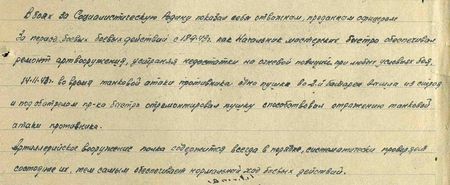 В боях за Социалистическую Родину показал себя отважным, преданным офицером
За период боевых действий с как Начальник мастерских быстро обеспечивал
ремонт артвооружения, устраняя недостатки на огневой позиции при любых условиях боя.
14-11-43г. во время танковой атаки противника одна пушка во 2-й батарее вышла из строя
и под обстрелом пр-ка быстро отремонтировал пушку способствовал отражению танковой
атаки противника.
Артиллерийское вооружение полка содержится всегда в порядке, систематически проверяет
состояние их, тем самым обеспечивает нормальный ход боевых действий.